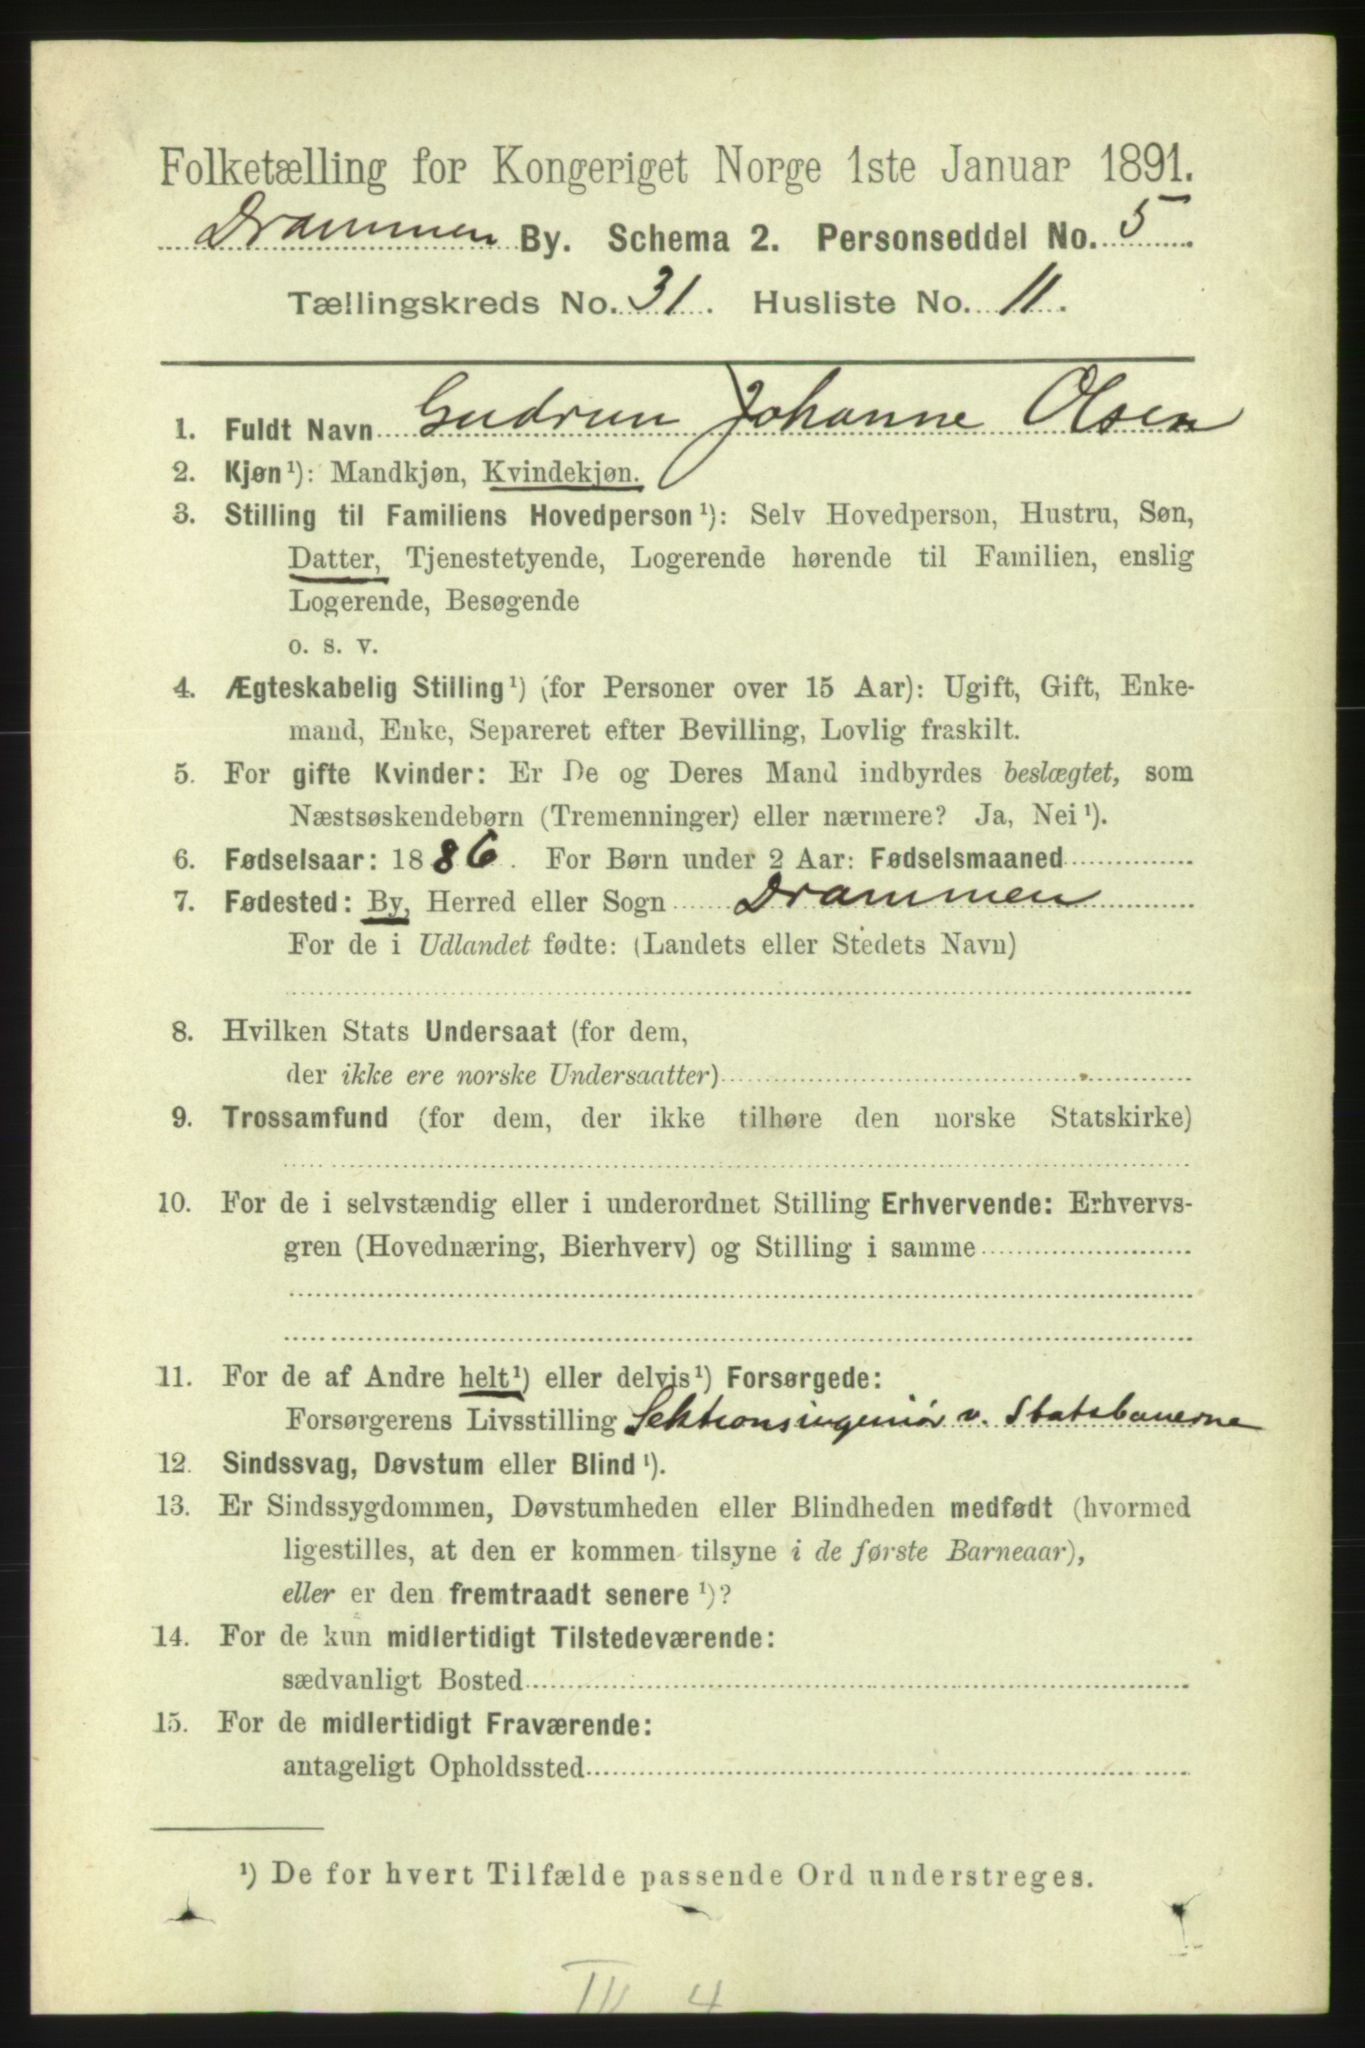 Folketælling for Kongeriget Norge 1ste Januar 1891.
Drammen By. Schema 2. Personseddel No. 5
Tællingskreds No. 31. Husliste No. 11.
1. Fuldt Navn Gudrun Johanne Olsen
2. Kjøn¹): Mandkjøn, Kvindekjøn.
3. Stilling til Familiens Hovedperson¹): Selv Hovedperson, Hustru, Søn,
Datter, Tjenestetyende, Logerende hørende til Familien, enslig
Logerende, Besøgende
o. s. v.
4. Ægteskabelig Stilling¹) (for Personer over 15 Aar): Ugift, Gift, Enke-
mand, Enke, Separeret efter Bevilling, Lovlig fraskilt.
5. For gifte Kvinder: Er De og Deres Mand indbyrdes beslægtet, som
Næstsøskendebørn (Tremenninger) eller nærmere? Ja, Nei¹).
6. Fødselsaar: 1886. For Børn under 2 Aar: Fødselsmaaned
7. Fødested: By, Herred eller Sogn Drammen
For de i Udlandet fødte: (Landets eller Stedets Navn)
8. Hvilken Stats Undersaat (for dem,
der ikke ere norske Undersaatter)
9. Trossamfund (for dem, der ikke tilhøre den norske Statskirke)
10. For de i selvstændig eller i underordnet Stilling Erhvervende: Erhvervs-
gren (Hovednæring, Bierhverv) og Stilling i samme
11. For de af Andre helt¹) eller delvis¹) Forsørgede:
Forsørgerens Livsstilling Sektionsingeniör v. Statsbanerne
12. Sindssvag, Døvstum eller Blind¹).
13. Er Sindssygdommen, Døvstumheden eller Blindheden medfødt (hvormed
ligestilles, at den er kommen tilsyne i de første Barneaar),
eller er den fremtraadt senere¹)?
14. For de kun midlertidigt Tilstedeværende:
sædvanligt Bosted
15. For de midlertidigt Fraværende:
antageligt Opholdssted
¹) De for hvert Tilfælde passende Ord understreges.
III 4